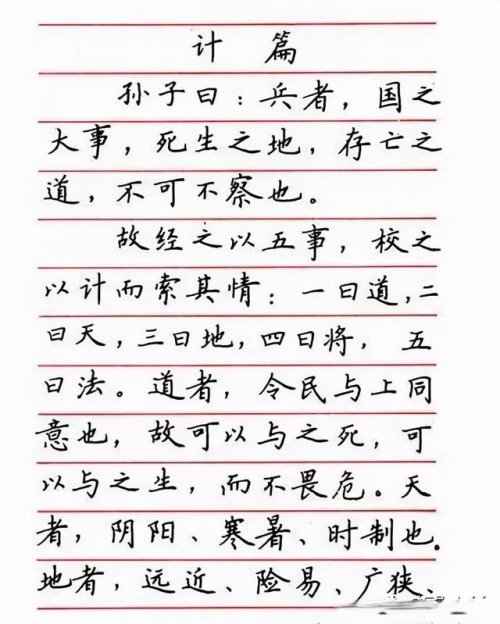 计 篇
孙子曰：兵者，国之
大事，死生之地，存亡之
道，不可不察也。
故经之以五事，校之
以计而索其情：一曰道，二
曰天，三曰地，四曰将，五
曰法。道者，令民与上同
意也，故可以与之死，可
以与之生，而不畏危。天
者，阴阳、寒暑、时制也。
地者，远近、险易、广狭、